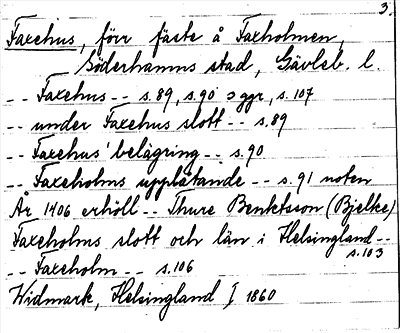 3.
Faxehus, förr fäste å Faxholmen,
Söderhamns stad, Gävleb. l.
-- Faxehus -- s. 89, s. 90 3 ggr, s. 107
-- under Faxehus slott -- s. 89
-- Faxehus' belägring -- s. 90
-- Faxeholms upplåtande -- s. 91 noten
År 1406 erhöll -- Thure Bentetsson (Bjelke)
Faxeholms slott och län i Helsingland --
s. 103
-- Faxeholm -- s. 106
Widmark, Helsingland I 1860